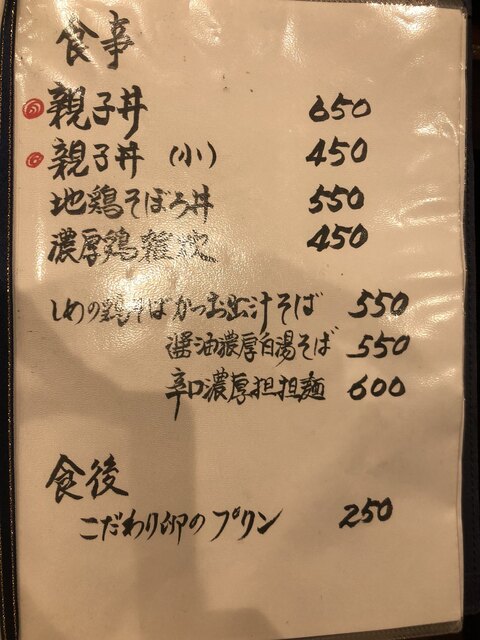 食事
親子丼 650
親子丼 (小) 450
地鶏そぼろ丼 550
濃厚鶏雑炊 450
しめの鶏そば かつお出汁そば 550
醤油濃厚白湯そば 550
辛口濃厚担担麺 600
食後
こだわり卵のプリン 250